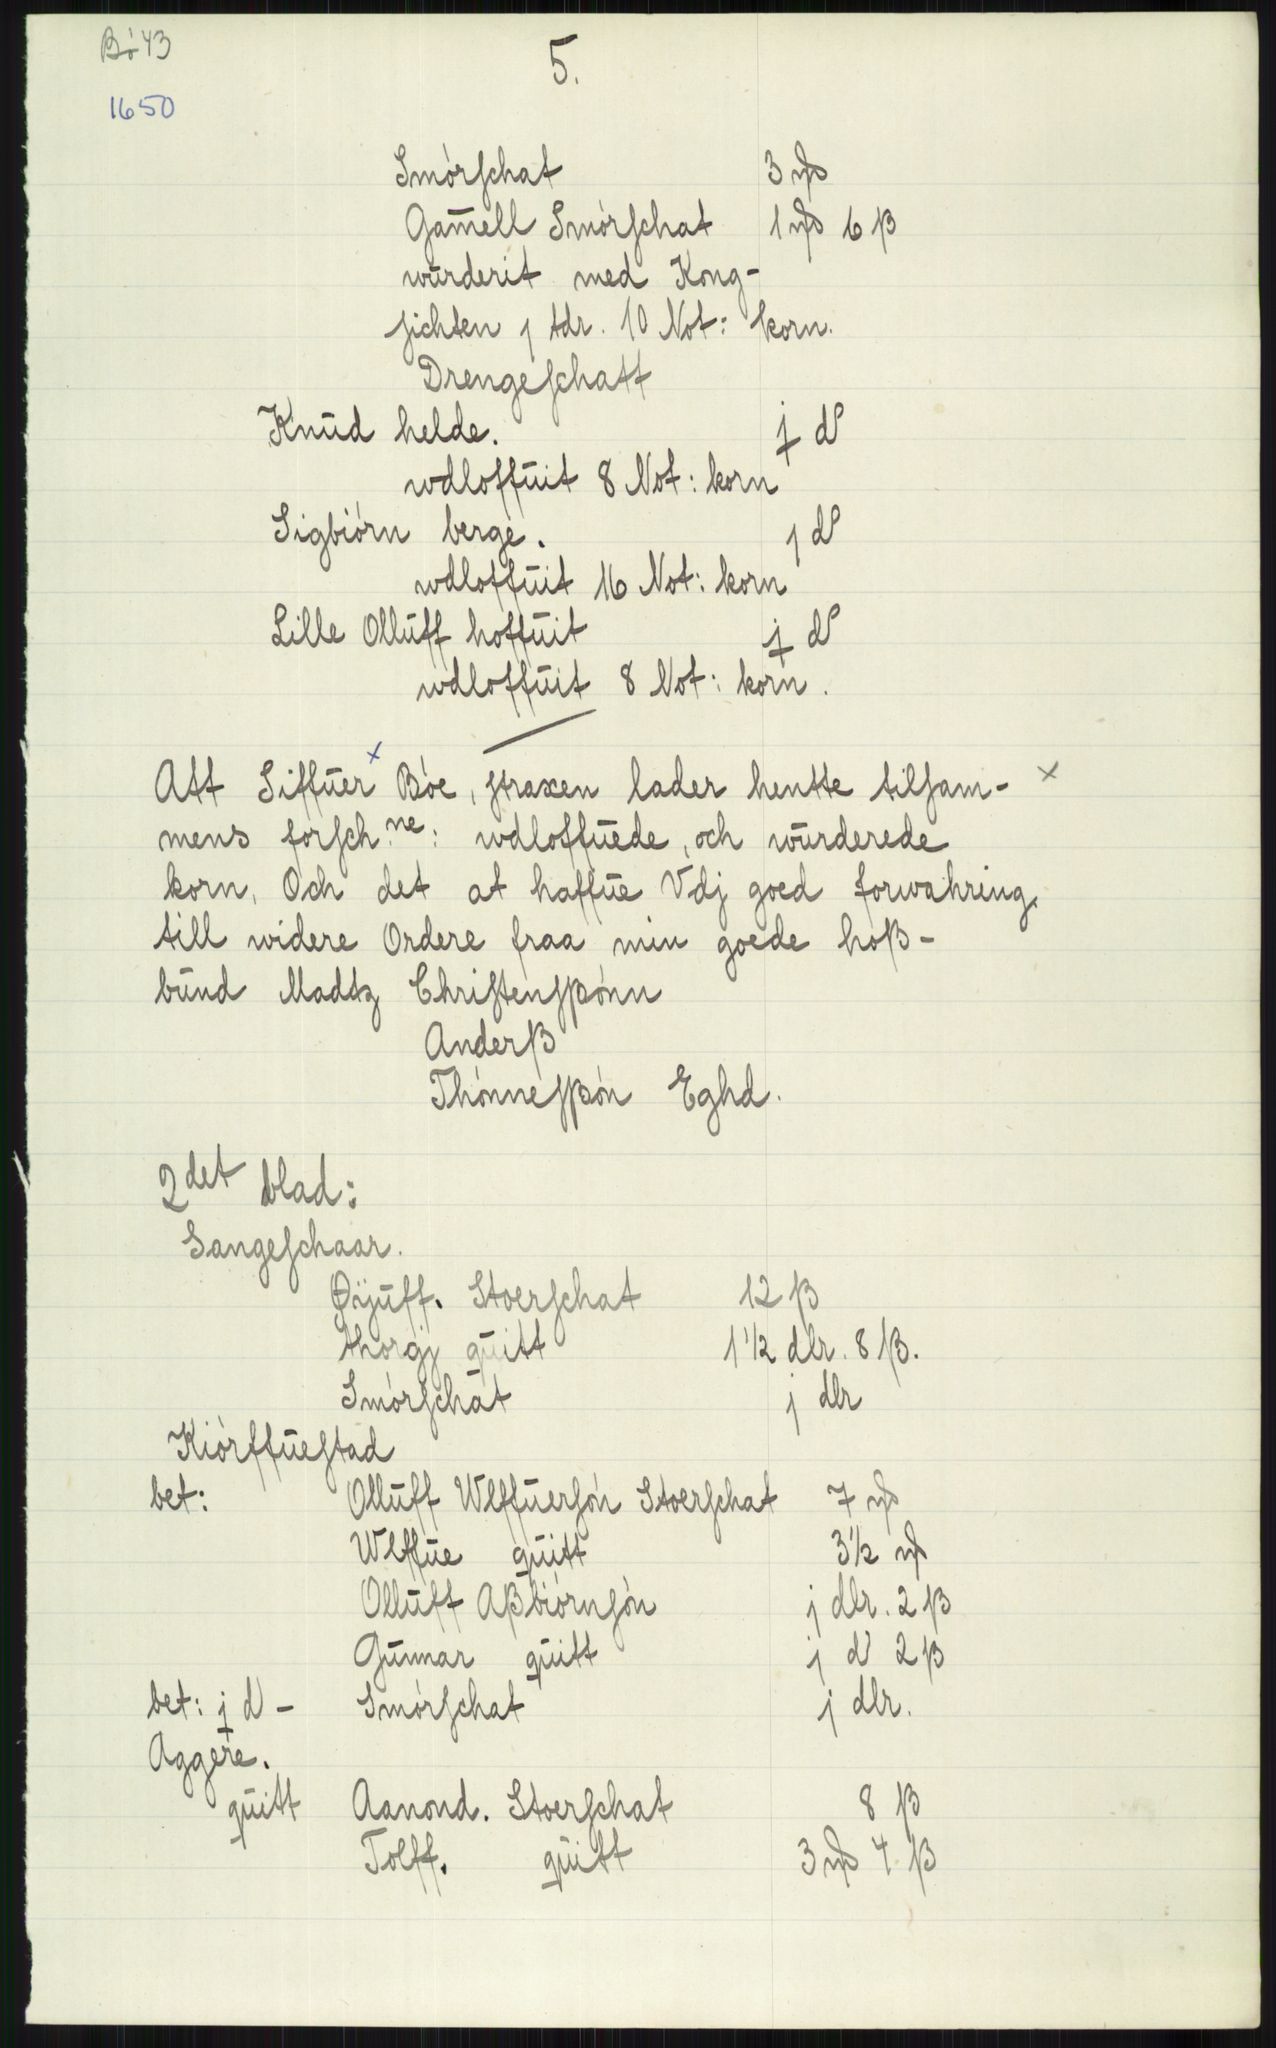 Bö 43
5.
1650
Smörschat 3 ɱß
Gam̄ell Smörschat 1 ɱß 6 ß
wūrderit med Kong-
sichten j tdr. 10 Not: korn.
Drengeschatt
Knūd helde. ɉ d
wdloffūit 8 Not: korn
Sigbiörn berge. j d
wdloffūit 16 Not: korn
Lille Ollūff hoffūit ɉ d
wdloffūit 8 Not: korn.
Att Siffūer x Böe, straxen lader hentte tilsam- x
mens forsch.ne: wdloffūede, och wūrderede
korn, Och det at haffūe Vdj goed forwahring,
till widere Ordere fraa min goede hoß-
būnd Madtz Christensßönn
Anderß
Thönnesßön Eghd.
2det blad:
Sangeschaar.
Øÿūff. Stoerschat 12 ß
thorgj qūitt 1 1/2 dlr. 8 ß.
Smörschat j dlr
Kiörffūestad
bet: Ollūff Wlffūersön Stoerschat 7 ɱß
Wlffūe qūitt 3 1/2 ɱß
Ollūff Aßbiörnsön j dlr. 2 ß
Gūnnar qūitt j d 2 ß
bet: ɉ d - Smörschat j dlr.
Aggere.
qūitt Aanond. Stoerschat 8 ß
Tolff. qūitt 3 ɱß 4 ß